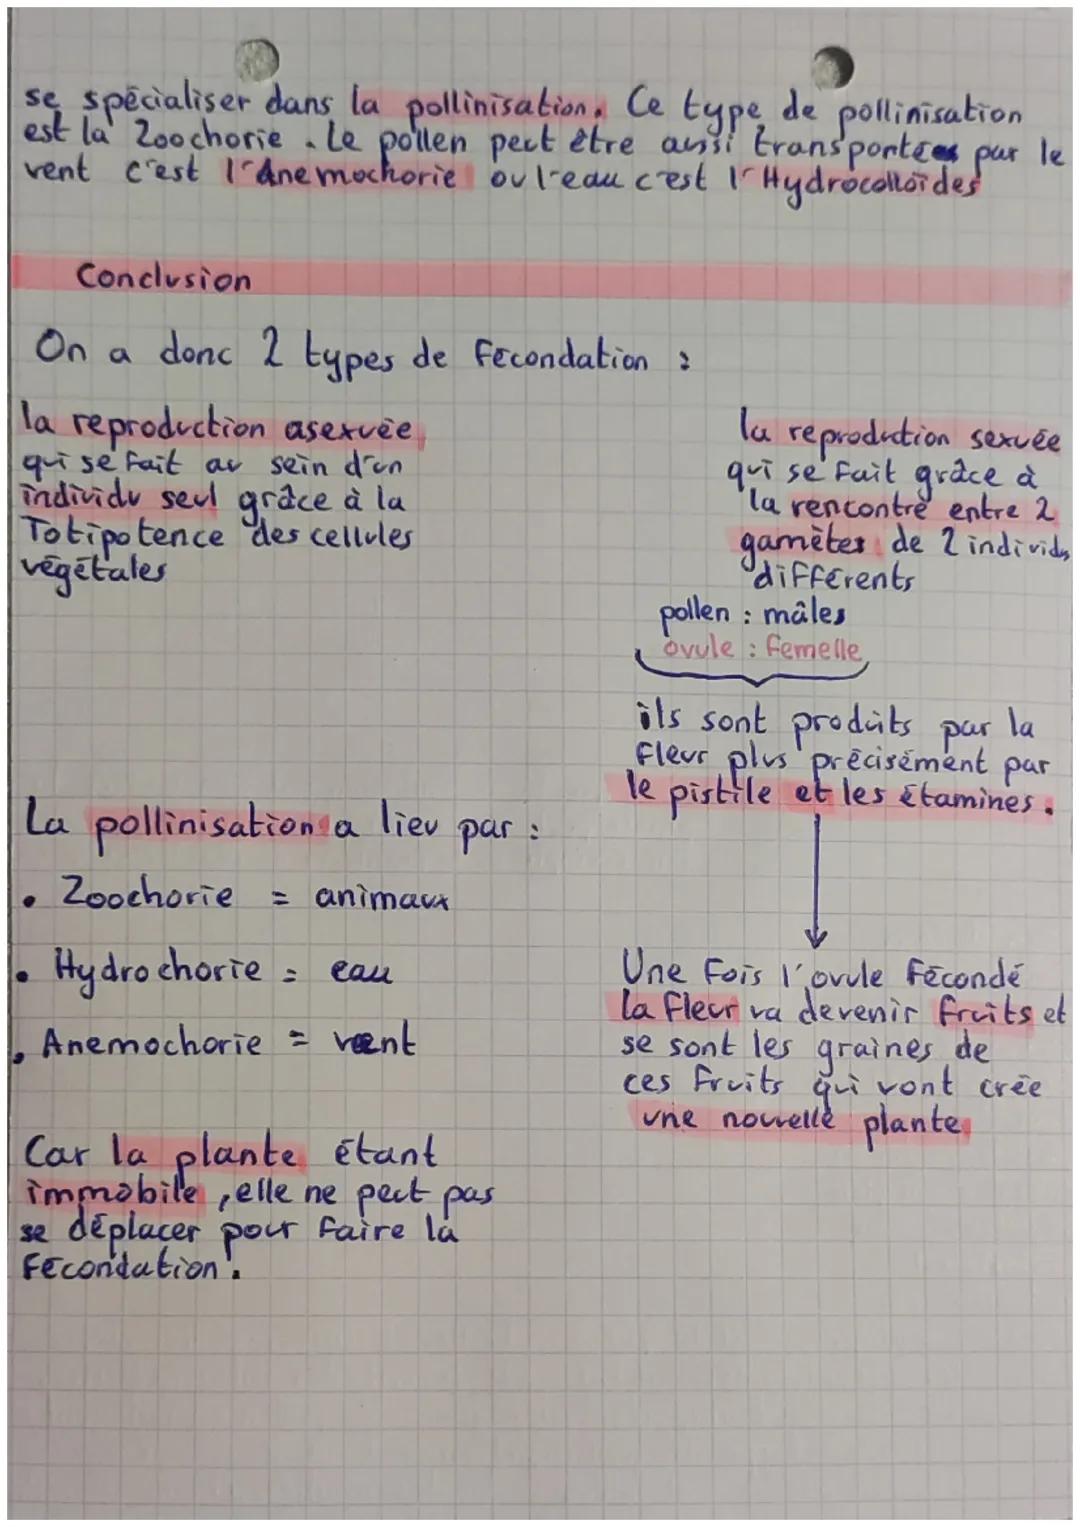 se spécialiser dans la pollinisation. Ce type de pollinisation
est la Zoochorie. Le pollen peut être aussi transportées par le
vent c'est l'Anemochorie ou l'eau c'est l'Hydrocolloïdes
Conclusion
On a donc 2 types de fécondation :
la reproduction asexuée
qui se fait au sein d'un
individu seul grâce à la
Totipotence des cellules
végétales
la reproduction sexuée
qui se fait grâce à
la rencontre entre 2
gamètes de 2 individus
différents
pollen : mâles
ovule : femelle
ils sont produits par la
fleur plus précisément par
le pistile et les étamines.
La pollinisation a lieu par :
• Zoochorie = animaux
• Hydrochorie = eau
• Anemochorie = vent
Car la plante étant
immobile, elle ne peut pas
se déplacer pour faire la
fécondation.
Une fois l'ovule fécondé
la fleur va devenir fruits et
se sont les graines de
ces fruits qui vont crée
une nouvelle plante